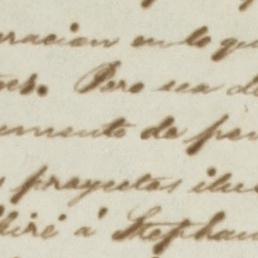 racion en lo qu
oes. Pero sea d
umento de pen
s proyectos ilu
biré á Stephan